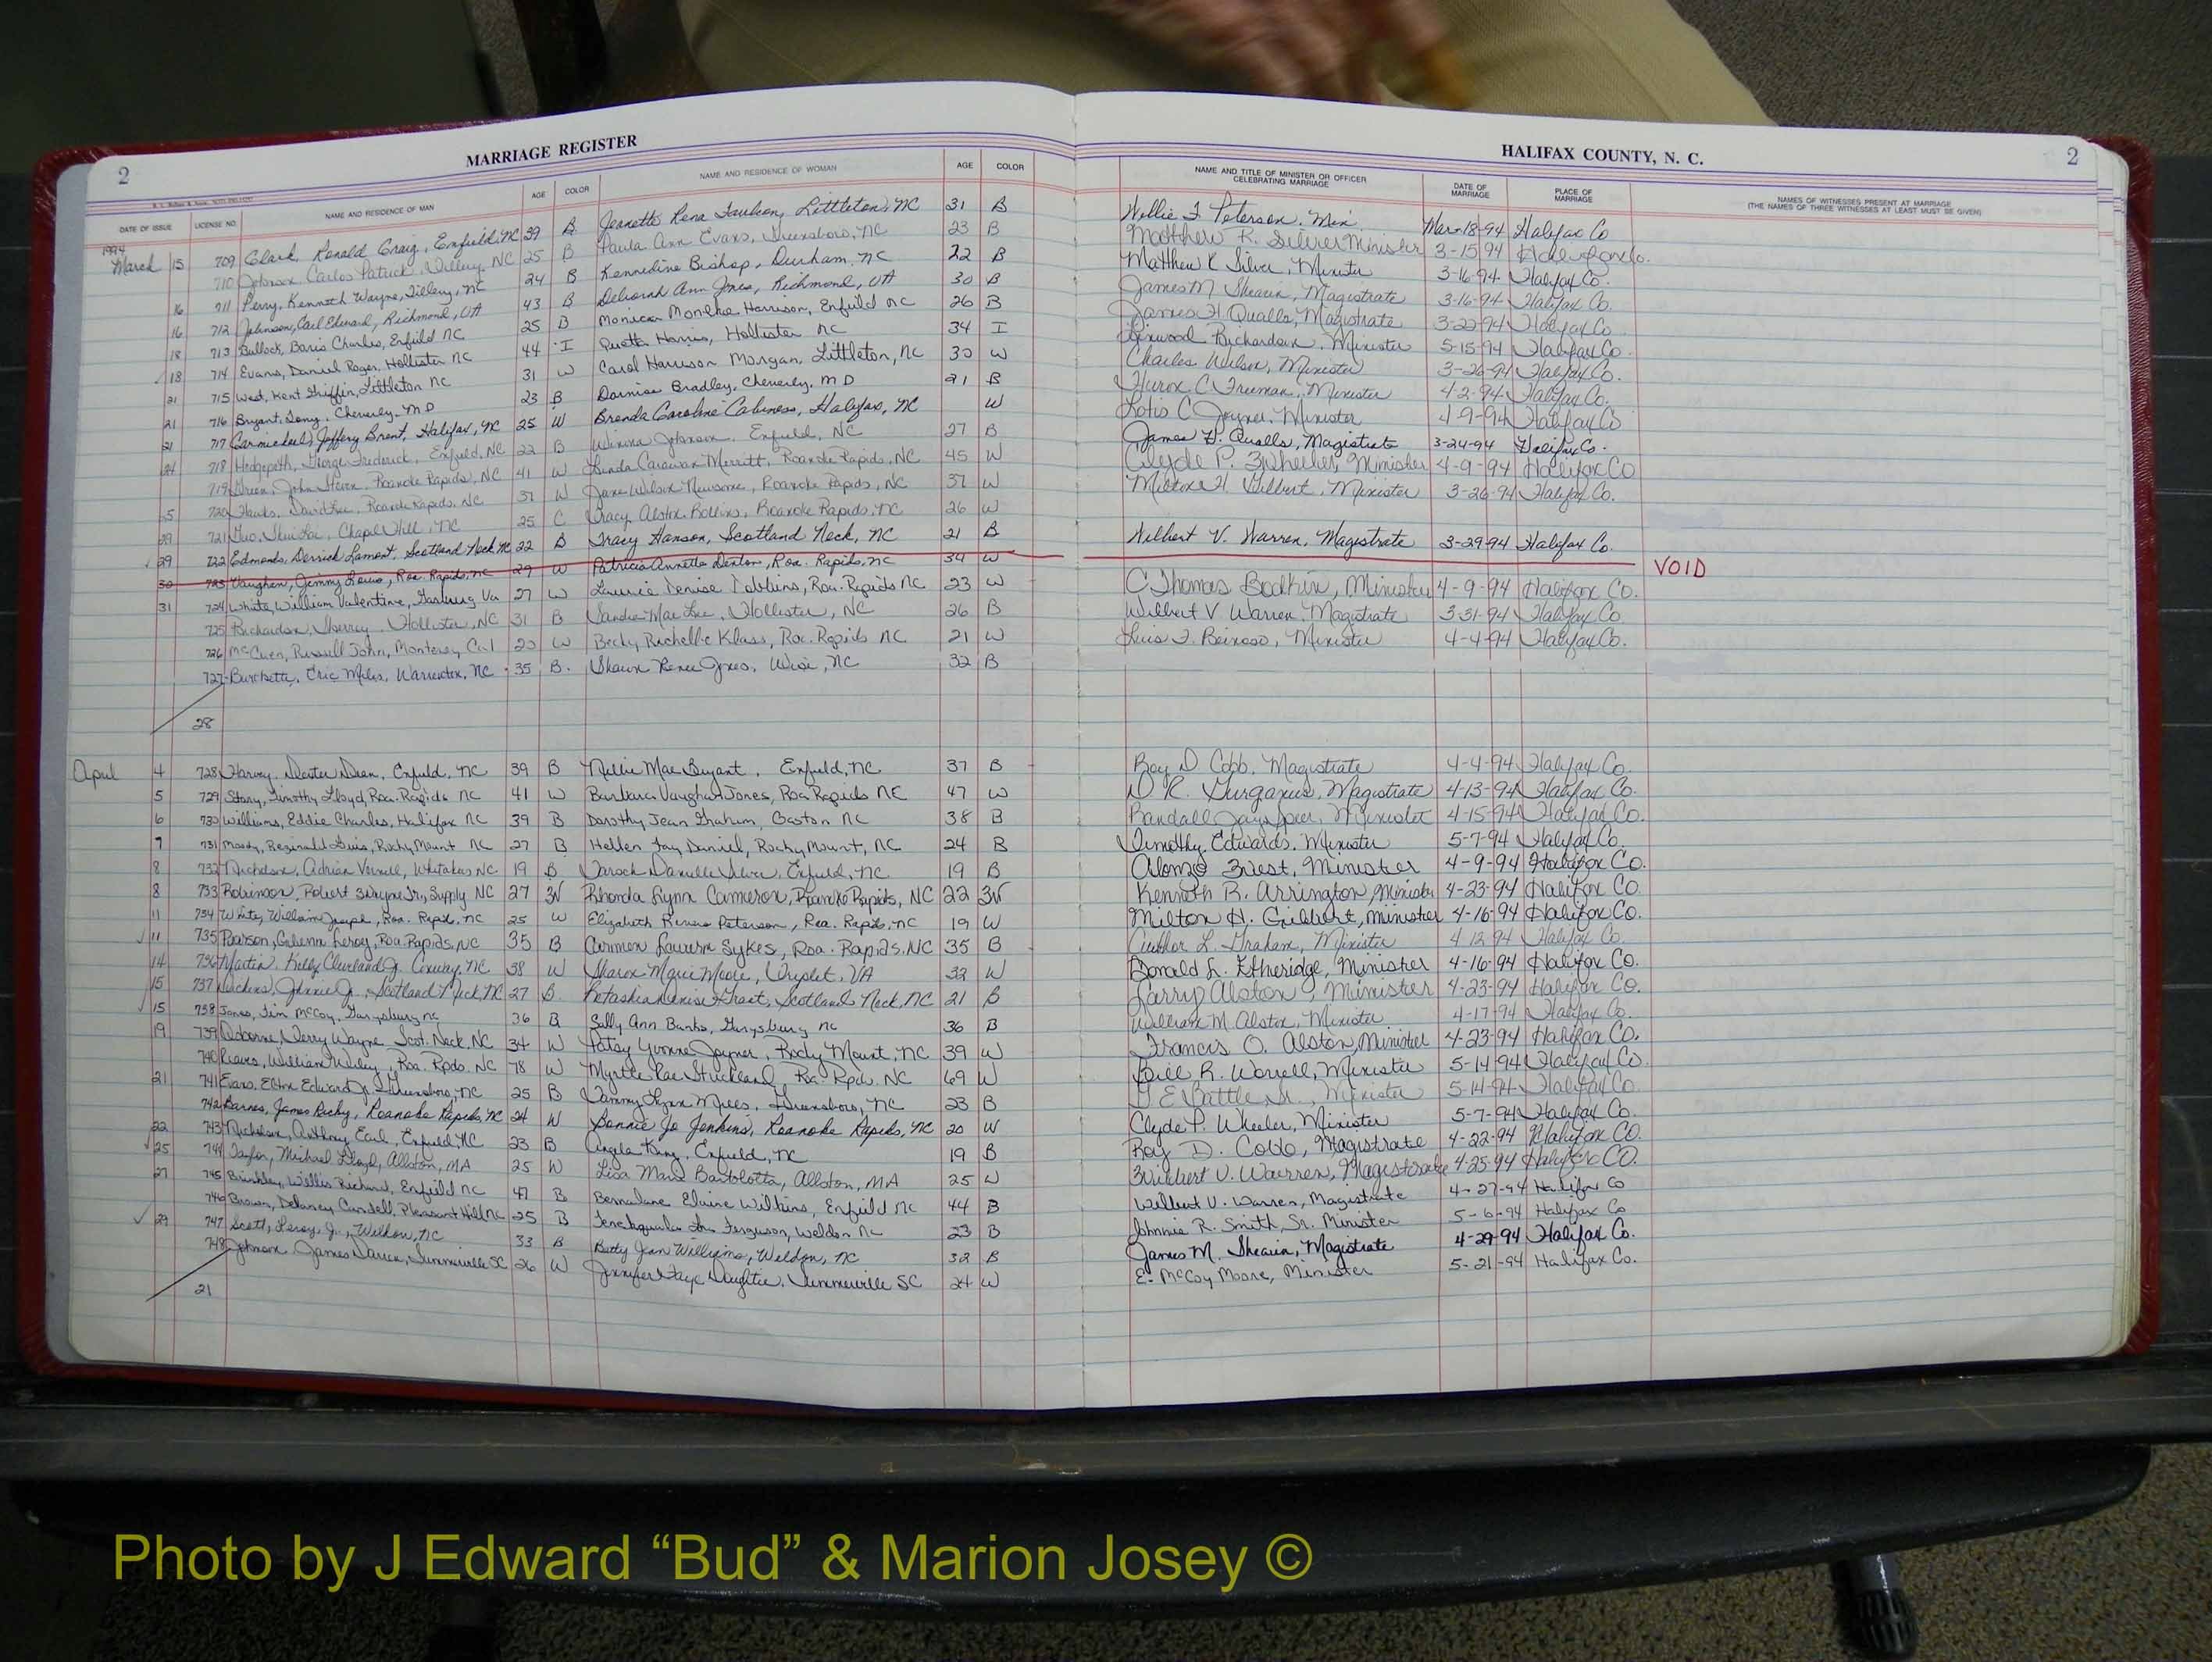 2
MARRIAGE REGISTER
HALIFAX COUNTY, N. C.
2
DATE OF ISSUE LICENSE NO. NAME AND RESIDENCE OF MAN AGE COLOR NAME AND RESIDENCE OF WOMAN AGE COLOR NAME AND TITLE OF MINISTER OR OFFICER CELEBRATING MARRIAGE DATE OF MARRIAGE PLACE OF MARRIAGE NAMES OF WITNESSES PRESENT AT MARRIAGE
(THE NAMES OF THREE WITNESSES AT LEAST MUST BE GIVEN)
1994
March 15 709 Clark, Ronald Craig, Enfield, NC 39 B Jeanette Rena Faulcon, Littleton, NC 31 B Willie F. Peterson, Min. Mar-18-94 Halifax Co
710 Johnson Carlos Patrick, Tillery, NC 25 B Paula Ann Evans, Greensboro, NC 23 B Matthew K. Silver Minister 3-15-94 Halifax Co.
16 711 Perry, Kenneth Wayne, Tillery, NC 24 B Kennedine Bishop, Durham, NC 22 B Matthew K Silver, Minister 3-16-94 Halifax Co.
16 712 Johnson, Carl Edward, Richmond, VA 43 B Deborah Ann Jones, Richmond, VA 30 B James M Shearin, Magistrate 3-16-94 Halifax Co.
18 713 Bullock, Boris Charles, Enfield NC 25 B Monica Harrison, Enfield NC 26 B James H. Qualls, Magistrate 3-22-94 Halifax Co
18 714 Evans, Daniel Roger, Hollister NC 44 I Queta Harris, Hollister NC 34 I Linwood Richardson, Minister 5-15-94 Halifax Co.
21 715 West, Kent Griffin, Littleton NC 31 W Carol Harrison Morgan, Littleton, NC 30 W Charles Wilson, Minister 3-26-94 Halifax Co.
21 716 Bryant, Tony, Cheverly, MD 23 B Darnise Bradley, Cheverly, MD 21 B C. Freeman, Minister 4-2-94 Halifax Co.
21 717 Carmichael, Jeffery Brent, Halifax, NC 25 W Brenda Caroline Cabiness, Halifax, NC W Lotis C Joyner, Minister 4-9-94 Halifax Co
24 718 Hedgepeth, George Frederick, Enfield, NC 22 B Winona Johnson, Enfield, NC 27 B James H. Qualls, Magistrate 3-24-94 Halifax Co.
719 Green, John Steven, Roanoke Rapids, NC 41 W Linda Carawan Merritt, Roanoke Rapids, NC 45 W Clyde P. Wheeler, Minister 4-9-94 Halifax Co
25 720 Hawks, David Lee, Roanoke Rapids, NC 37 W Jane Wilson Newsome, Roanoke Rapids, NC 37 W Milton H. Gilbert, Minister 3-26-94 Halifax Co.
29 721 Chapel Hill, NC 25 C Tracy Alston Rollins, Roanoke Rapids, NC 26 W
29 722 Edmonds, Derrick Lamont, Scotland Neck NC 22 B Tracy Hanson, Scotland Neck, NC 21 B Wilbert V. Warren, Magistrate 3-29-94 Halifax Co.
30 723 Vaughan, Jimmy Lewis, Roa. Rapids, NC 29 W Patricia Annette Denton, Roa. Rapids, NC 34 W VOID
31 724 White, William Valentine, Gasburg Va 27 W Laurie Denise Robbins, Roa. Rapids NC 23 W C Thomas Bodkin, Minister 4-9-94 Halifax Co.
725 Richardson, Hollister, NC 31 B Sandra Mae Lee, Hollister, NC 26 B Wilbert V Warren, Magistrate 3-31-94 Halifax Co.
726 McCuen, Russell John, Monterey Cal 20 W Becky Richelle Klass, Roa. Rapids NC 21 W Luis F. Reinoso, Minister 4-4-94 Halifax Co.
727 Burchette, Eric Miles, Warrenton, NC 35 B Shawn Renee Jones, Wise, NC 32 B
28
April 4 728 Harvey, Dexter Dean, Enfield, NC 39 B Nellie Mae Bryant, Enfield, NC 37 B Roy D Cobb, Magistrate 4-4-94 Halifax Co.
5 729 Story, Timothy Lloyd, Roa. Rapids NC 41 W Barbara Vaughan Jones, Roa Rapids NC 47 W D. R. Gurganus, Magistrate 4-13-94 Halifax Co.
6 730 Williams, Eddie Charles, Halifax NC 39 B Dorothy Jean Graham, Gaston NC 38 B Randall Minister 4-15-94 Halifax Co.
7 731 Moody, Reginald Luis, Rocky Mount NC 27 B Hellen Fay Daniel, Rocky Mount, NC 24 B Timothy Edwards, Minister 5-7-94 Halifax Co.
8 732 Nicholson, Adrian Whitakers NC 19 B Danielle Silver, Enfield, NC 19 B Alonzo West, Minister 4-9-94 Halifax Co.
8 733 Robinson, Robert Wayne Jr., Supply NC 27 W Rhonda Lynn Cameron, Roanoke Rapids, NC 22 W Kenneth R. Arrington, Minister 4-23-94 Halifax Co
11 734 White, William Joseph, Roa. Rapids, NC 25 W Elizabeth Renee Peterson, Roa. Rapids, NC 19 W Milton H. Gilbert, Minister 4-16-94 Halifax Co.
11 735 Pearson, Glenn Leroy, Roa Rapids, NC 35 B Carmen Lauern Sykes, Roa. Rapids, NC 35 B Author L. Graham, Minister 4 12 94 Halifax Co.
14 736 Martin, Kelly Cleveland Jr. Conway, NC 38 W Sharon Marie Moore, Triplet, VA 32 W Donald L. Etheridge, Minister 4-16-94 Halifax Co.
15 737 Johnnie Jr., Scotland Neck, NC 27 B Scotland Neck, NC 21 B Larry Alston, Minister 4-23-94 Halifax Co.
15 738 Jones, Tim McCoy, Garysburg NC 36 B Sally Ann Banks, Garysburg NC 36 B William M. Alston, Minister 4-17-94 Halifax Co.
19 739 Osborne, Terry Wayne Scot. Neck, NC 34 W Patsy Yvonne Joyner, Rocky Mount, NC 39 W Francis O. Alston, Minister 4-23-94 Halifax Co.
740 Reaves, William Wesley, Roa. Rpds. NC 78 W Myrtle Rae Strickland, Roa. Rpds. NC 69 W Bill R. Worrell, Minister 5-14-94 Halifax Co.
21 741 Evans, Elton Edward Jr. Greensboro, NC 25 B Tammy Lynn Mills, Greensboro, NC 23 B Battle Sr., Minister 5-14-94 Halifax Co.
742 Barnes, James Ricky, Roanoke Rapids, NC 24 W Bonnie Jo Jenkins, Roanoke Rapids, NC 20 W Clyde P. Wheeler, Minister 5-7-94 Halifax Co.
22 743 Nicholson, Anthony Earl, Enfield NC 23 B Angela King, Enfield, NC 19 B Roy D. Cobb, Magistrate 4-22-94 Halifax Co.
25 744 Taylor, Michael Lloyd, Allston, MA 25 W Lisa Marie Bartolotta, Allston, MA 25 W Wilbert V. Warren, Magistrate 4-25-94 Halifax CO.
27 745 Brinkley, Willis Richard, Enfield NC 47 B Bernadine Elaine Wilkins, Enfield NC 44 B Wilbert V. Warren, Magistrate 4-27-94 Halifax Co
746 Brown, Delaney Pleasant Hill NC 25 B Ferguson, Weldon NC 23 B Johnnie R. Smith, Sr. Minister 5-6-94 Halifax Co
29 747 Scott, Leroy Jr., Weldon, NC 33 B Betty Jean Williams, Weldon, NC 32 B James M. Shearin, Magistrate 4-29-94 Halifax Co.
748 Johnson James Darren, Summerville SC 26 W Jennifer Faye Daughtee, Summerville SC 24 W E. McCoy Moore, Minister 5-21-94 Halifax Co.
21
Photo by J Edward “Bud” & Marion Josey ©